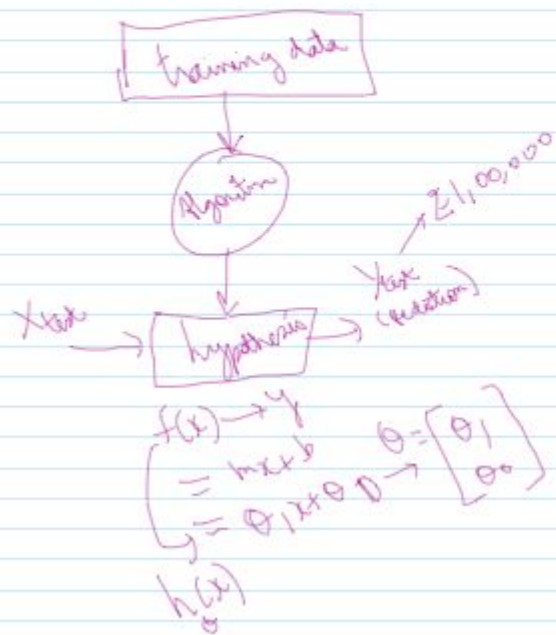 training data
Algorithm
₹1,00,000
Xtest
hypothesis
Ytest
(prediction)
f(x) → y
= mx + b
= θ1x + θ0 → θ = [θ1 θ0]
hθ(x)